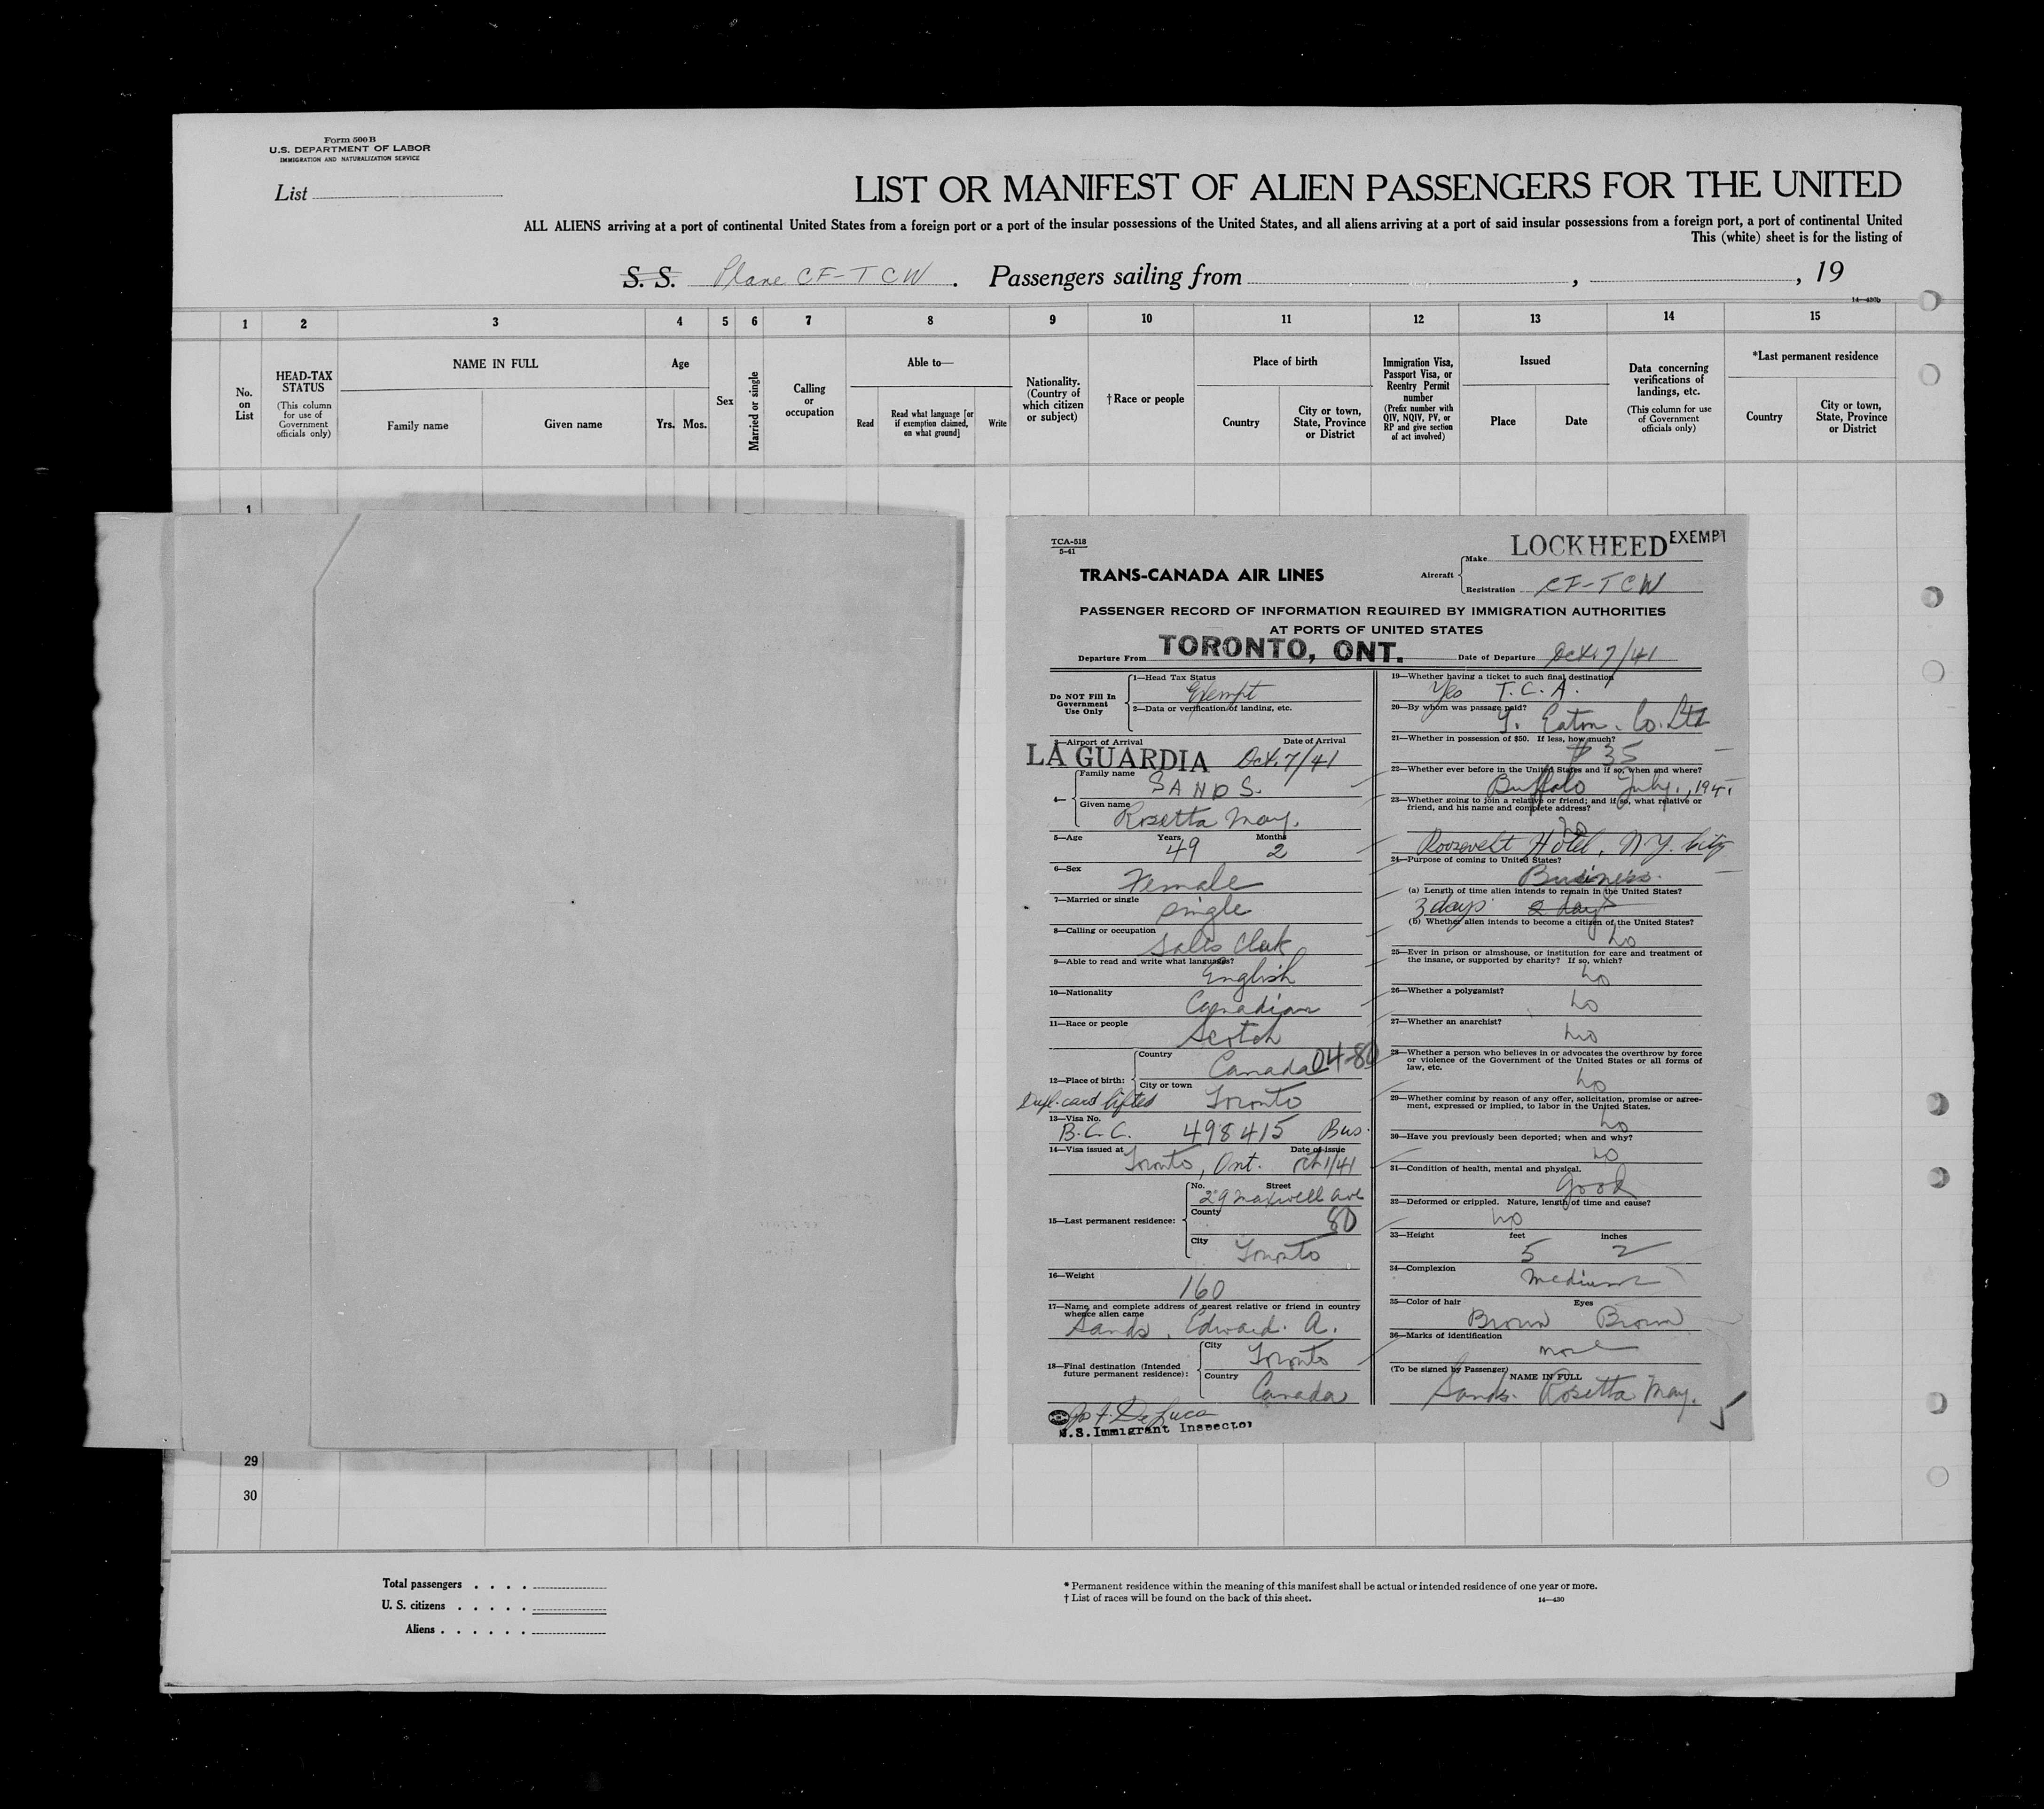 Form 500 B
U.S. DEPARTMENT OF LABOR
IMMIGRATION AND NATURALIZATION SERVICE
List
LIST OR MANIFEST OF ALIEN PASSENGERS FOR THE UNITED
ALL ALIENS arriving at a port of continental United States from a foreign port or a port of the insular possessions of the United States, and all aliens arriving at a port of said insular possessions from a foreign port, a port of continental United
This (white) sheet is for the listing of
S. S. Plane CF-TCW . Passengers sailing from , , 19
14—430b
1 2 3 4 5 6 7 8 9 10 11 12 13 14 15
No. on List
HEAD-TAX STATUS
(This column for use of Government officials only)
NAME IN FULL
Family name Given name
Age
Yrs. Mos.
Sex
Married or single
Calling or occupation
Able to—
Read
Read what language [or if exemption claimed, on what ground]
Write
Nationality. (Country of which citizen or subject)
†Race or people
Place of birth
Country
City or town, State, Province or District
Immigration Visa, Passport Visa, or Reentry Permit number
(Prefix number with QIV, NQIV, PV, or RP and give section of act involved)
Issued
Place Date
Data concerning verifications of landings, etc.
(This column for use of Government officials only)
*Last permanent residence
Country
City or town, State, Province or District
1
TCA-518
5-41
TRANS-CANADA AIR LINES
Aircraft
Make LOCKHEED EXEMPT
Registration CF-TCW
PASSENGER RECORD OF INFORMATION REQUIRED BY IMMIGRATION AUTHORITIES
AT PORTS OF UNITED STATES
Departure From TORONTO, ONT. Date of Departure Oct. 7/41
Do NOT Fill In Government Use Only
1—Head Tax Status
Exempt
2—Data or verification of landing, etc.
3—Airport of Arrival Date of Arrival
LA GUARDIA Oct. 7/41
4—
Family name
SANDS.
Given name
Rosetta May.
5—Age Years Months
49 2
6—Sex
Female
7—Married or single
single
8—Calling or occupation
Sales Clerk
9—Able to read and write what languages?
English
10—Nationality
Canadian
11—Race or people
Scotch
12—Place of birth:
Country
Canada 04-80
City or town
Toronto
Dupl. card lifted
13—Visa No.
B.C.C. 498415 Bus.
14—Visa issued at Date of issue
Toronto, Ont. Oct 1/41
15—Last permanent residence:
No. Street
29 Maxwell Ave
County
80
City
Toronto
16—Weight
160
17—Name and complete address of nearest relative or friend in country whence alien came
Sands, Edward. A.
18—Final destination (Intended future permanent residence):
City
Toronto
Country
Canada
De Luca
U.S. Immigrant Inspector
19—Whether having a ticket to such final destination
Yes T.C.A.
20—By whom was passage paid?
T. Eaton. Co. Ltd
21—Whether in possession of $50. If less, how much?
$35
22—Whether ever before in the United States and if so, when and where?
Buffalo July,
23—Whether going to join a relative or friend; and if so, what relative or friend, and his name and complete address?
no
Roosevelt Hotel, N.Y. City
24—Purpose of coming to United States?
Business.
(a) Length of time alien intends to remain in the United States?
3 days 2 days
(b) Whether alien intends to become a citizen of the United States?
no
25—Ever in prison or almshouse, or institution for care and treatment of the insane, or supported by charity? If so, which?
no
26—Whether a polygamist?
no
27—Whether an anarchist?
no
28—Whether a person who believes in or advocates the overthrow by force or violence of the Government of the United States or all forms of law, etc.
no
29—Whether coming by reason of any offer, solicitation, promise or agreement, expressed or implied, to labor in the United States.
no
30—Have you previously been deported; when and why?
no
31—Condition of health, mental and physical.
good
32—Deformed or crippled. Nature, length of time and cause?
no
33—Height feet inches
5 2
34—Complexion
medium
35—Color of hair Eyes
Brown Brown
36—Marks of identification
none
(To be signed by Passenger)
NAME IN FULL
Sands. Rosetta May.
29
30
Total passengers
U. S. citizens
Aliens
* Permanent residence within the meaning of this manifest shall be actual or intended residence of one year or more.
† List of races will be found on the back of this sheet.
14—430